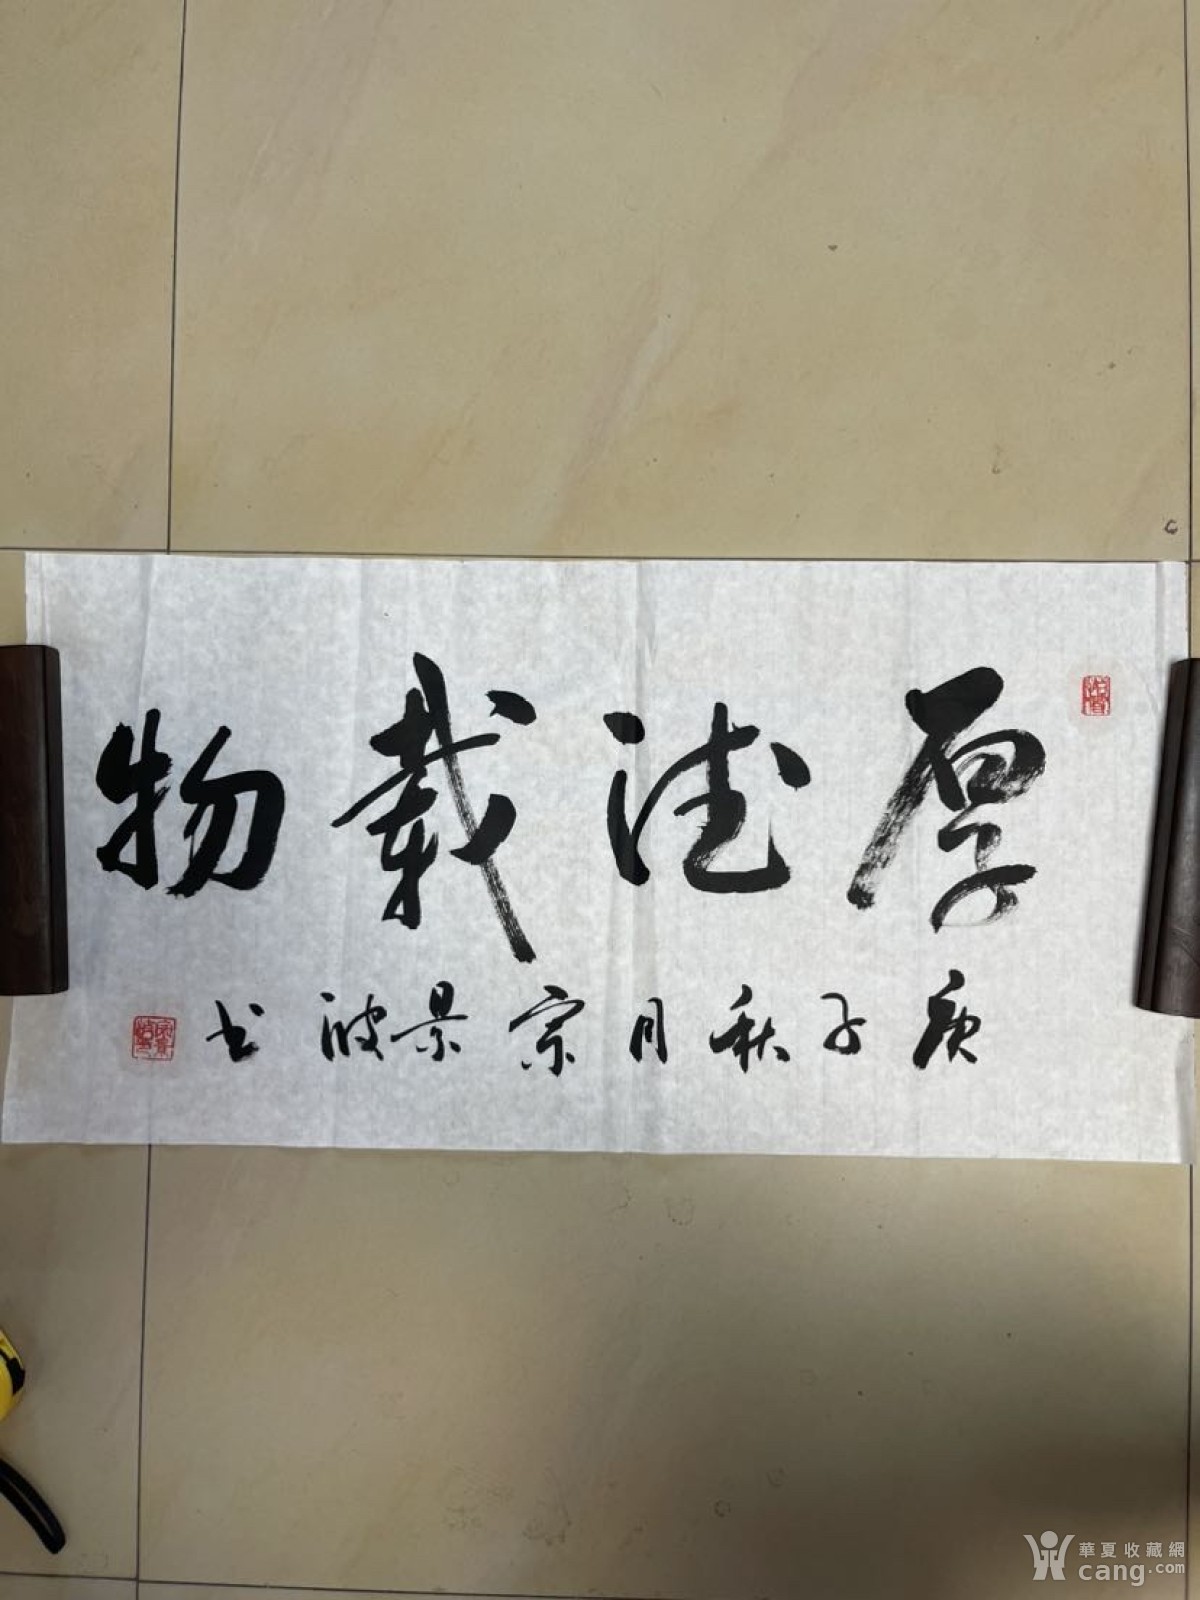 厚德载物
庚子秋月宗景波书
華夏收藏網
cang.com